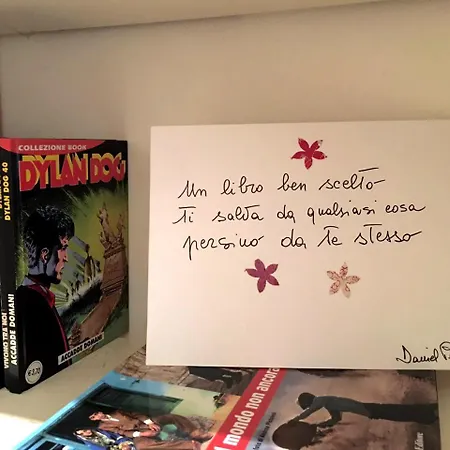 COLLEZIONE BOOK
DYLAN DOG
DYLAN DOG 40
VIVONO TRA NOI
ACCADDE DOMANI
ACCADDE DOMANI
€ 3,70
Un libro ben scelto
ti salva da qualsiasi cosa
persino da te stesso
Daniel
il mondo non ancora